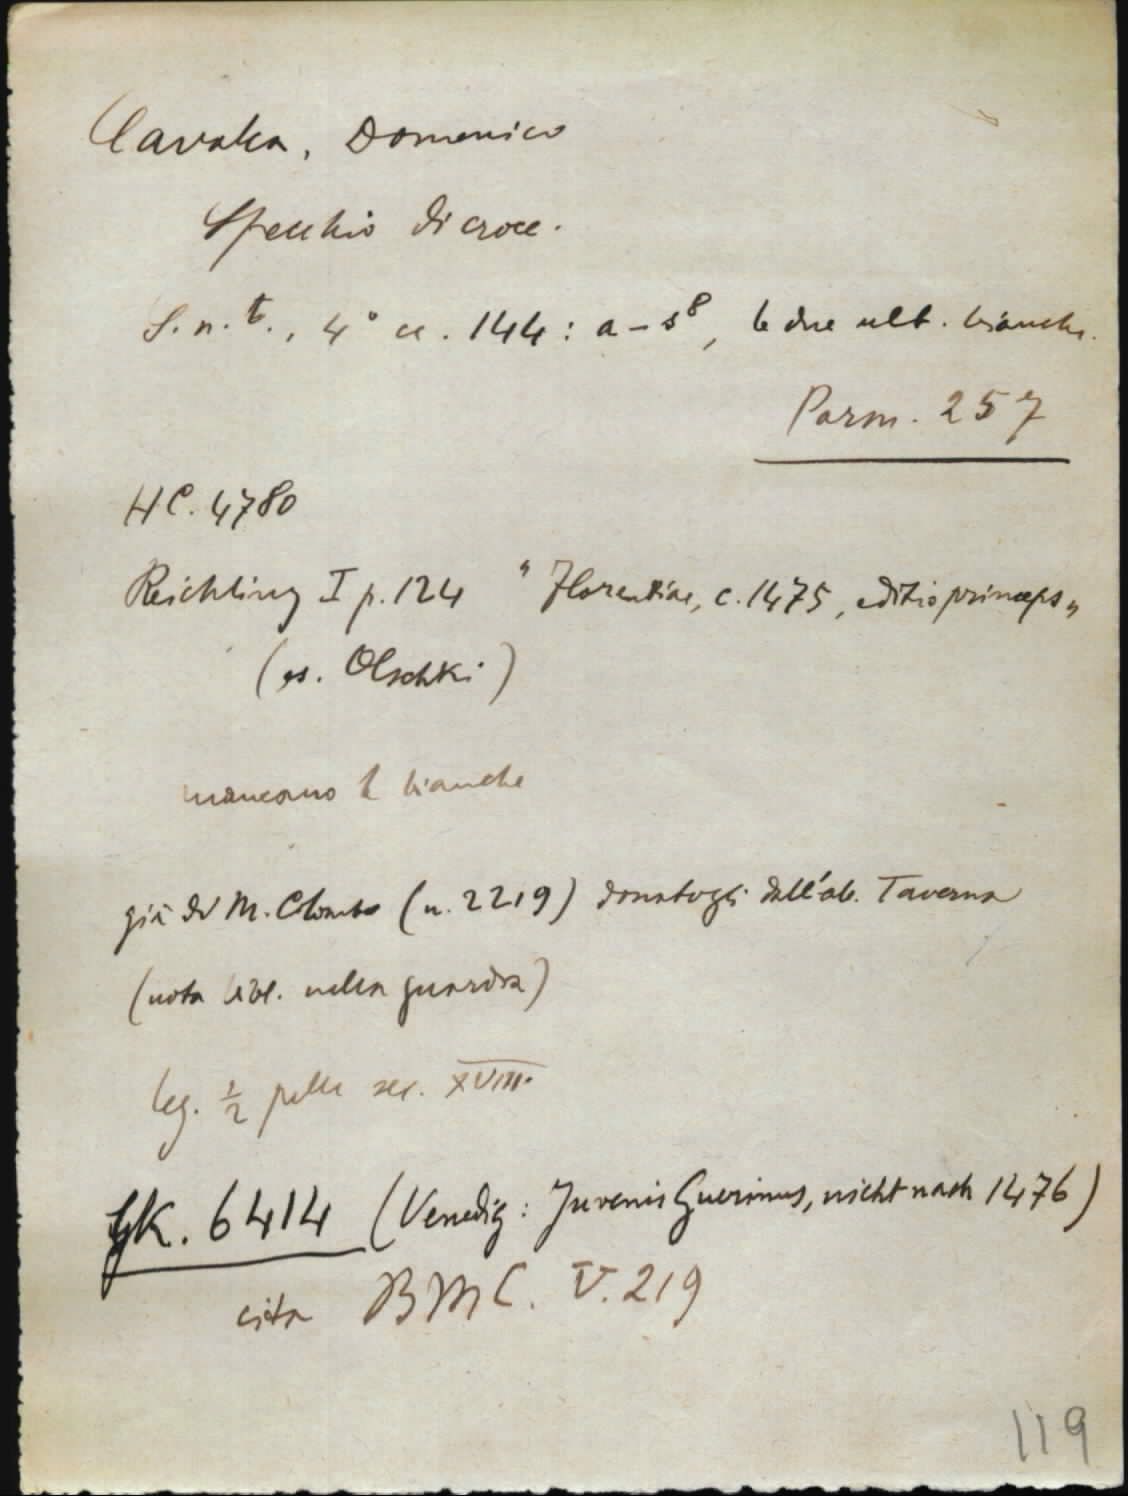 Cavalca, Domenico
Specchio di croce.
S. n. t., 4° cc. 144: a-s⁸, le due ult. bianche.
Parm. 257
HC. 4780
Reichling I p. 124 "Florentiae, c. 1475, editio princeps"
(es. Olschki)
mancano le bianche
già di M. Colombo (n. 2219) donatogli dall'ab. Taverna
(nota bibl. nella guardia)
leg. ½ pelle sec. XVIII.
GK. 6414 (Venedig: Juvenis Guerinus, nicht nach 1476)
cita BMC. V. 219
119